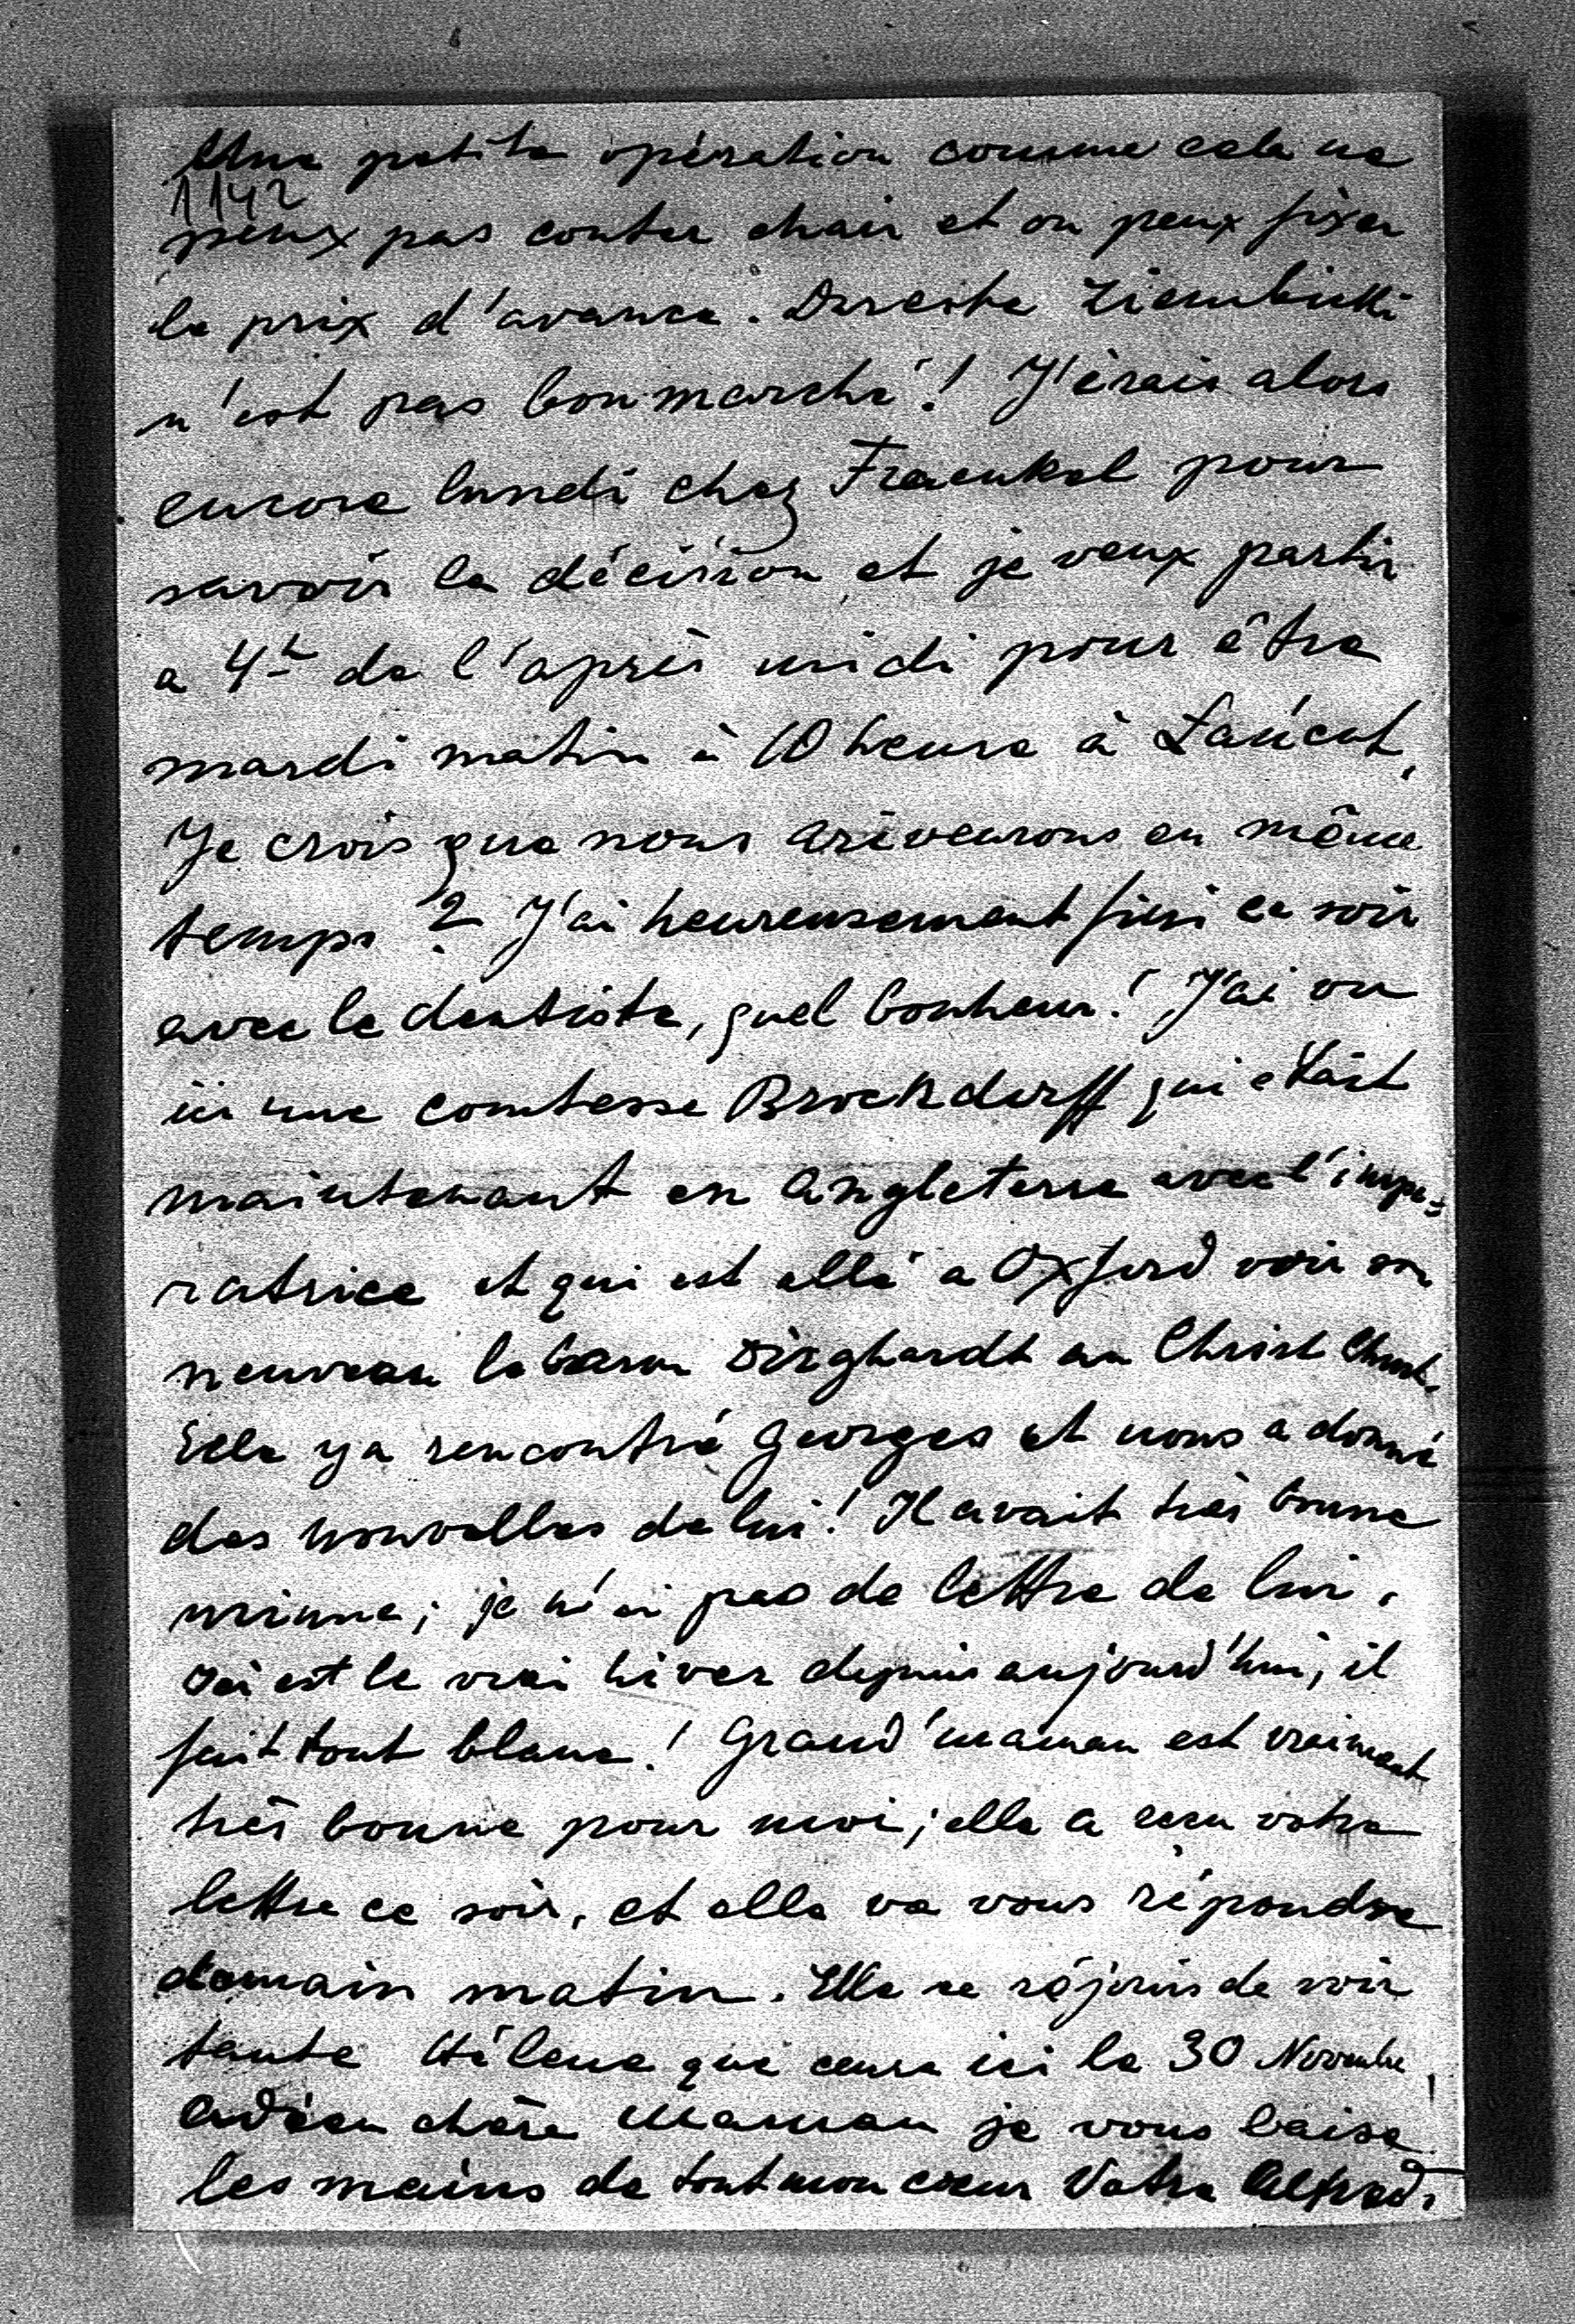 Une petite opération comme cela ne
1142
peux pas couter chair et on peux fixer
le prix d'avance. Du reste Ziembicki
n'est pas bon marché! J'érais alors
encore lundi chez Fraenkel pour
savoir la décision et je veux partir
a 4h de l'après midi pour être
mardi matin à 10 heure à Łańcut.
Je crois que nous ariveurons en même
temps? J'ai heureusement fini ce soir
avec le dentiste, quel bonheur! J'ai vu
ici une comtesse Brockdorff qui etait
maintenant en Angleterre avec l'impe=
ratrice et qui est allé a Oxford voir son
neuveau le baron Dirghardt au Christ Church.
Elle y a rencontré Georges et nous a donné
des nouvelles de lui! Il avait très bonne
minne; je n'ai pas de lettre de lui.
Ici est le vrai hiver depuis aujourd'hui, il
fait tout blanc! Grand'maman est vraiment
très bonne pour moi; elle a reçu votre
lettre ce soir, et elle va vous répondre
domain matin. Elle se réjouis de voir
tante Hélene que cera ici le 30 Novembre!
Adieu chère Maman je vous baise
les mains de tout mon cœur Votre Alfred.